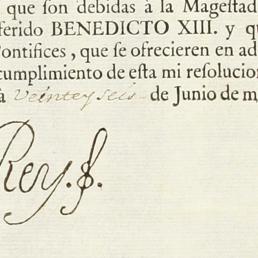 que son debidas à la Magestad
ferido BENEDICTO XIII. y qu
Pontifices, que se ofrecieren en ad
cumplimiento de esta mi resolucion
à Veinte y seis de Junio de m
Rey.